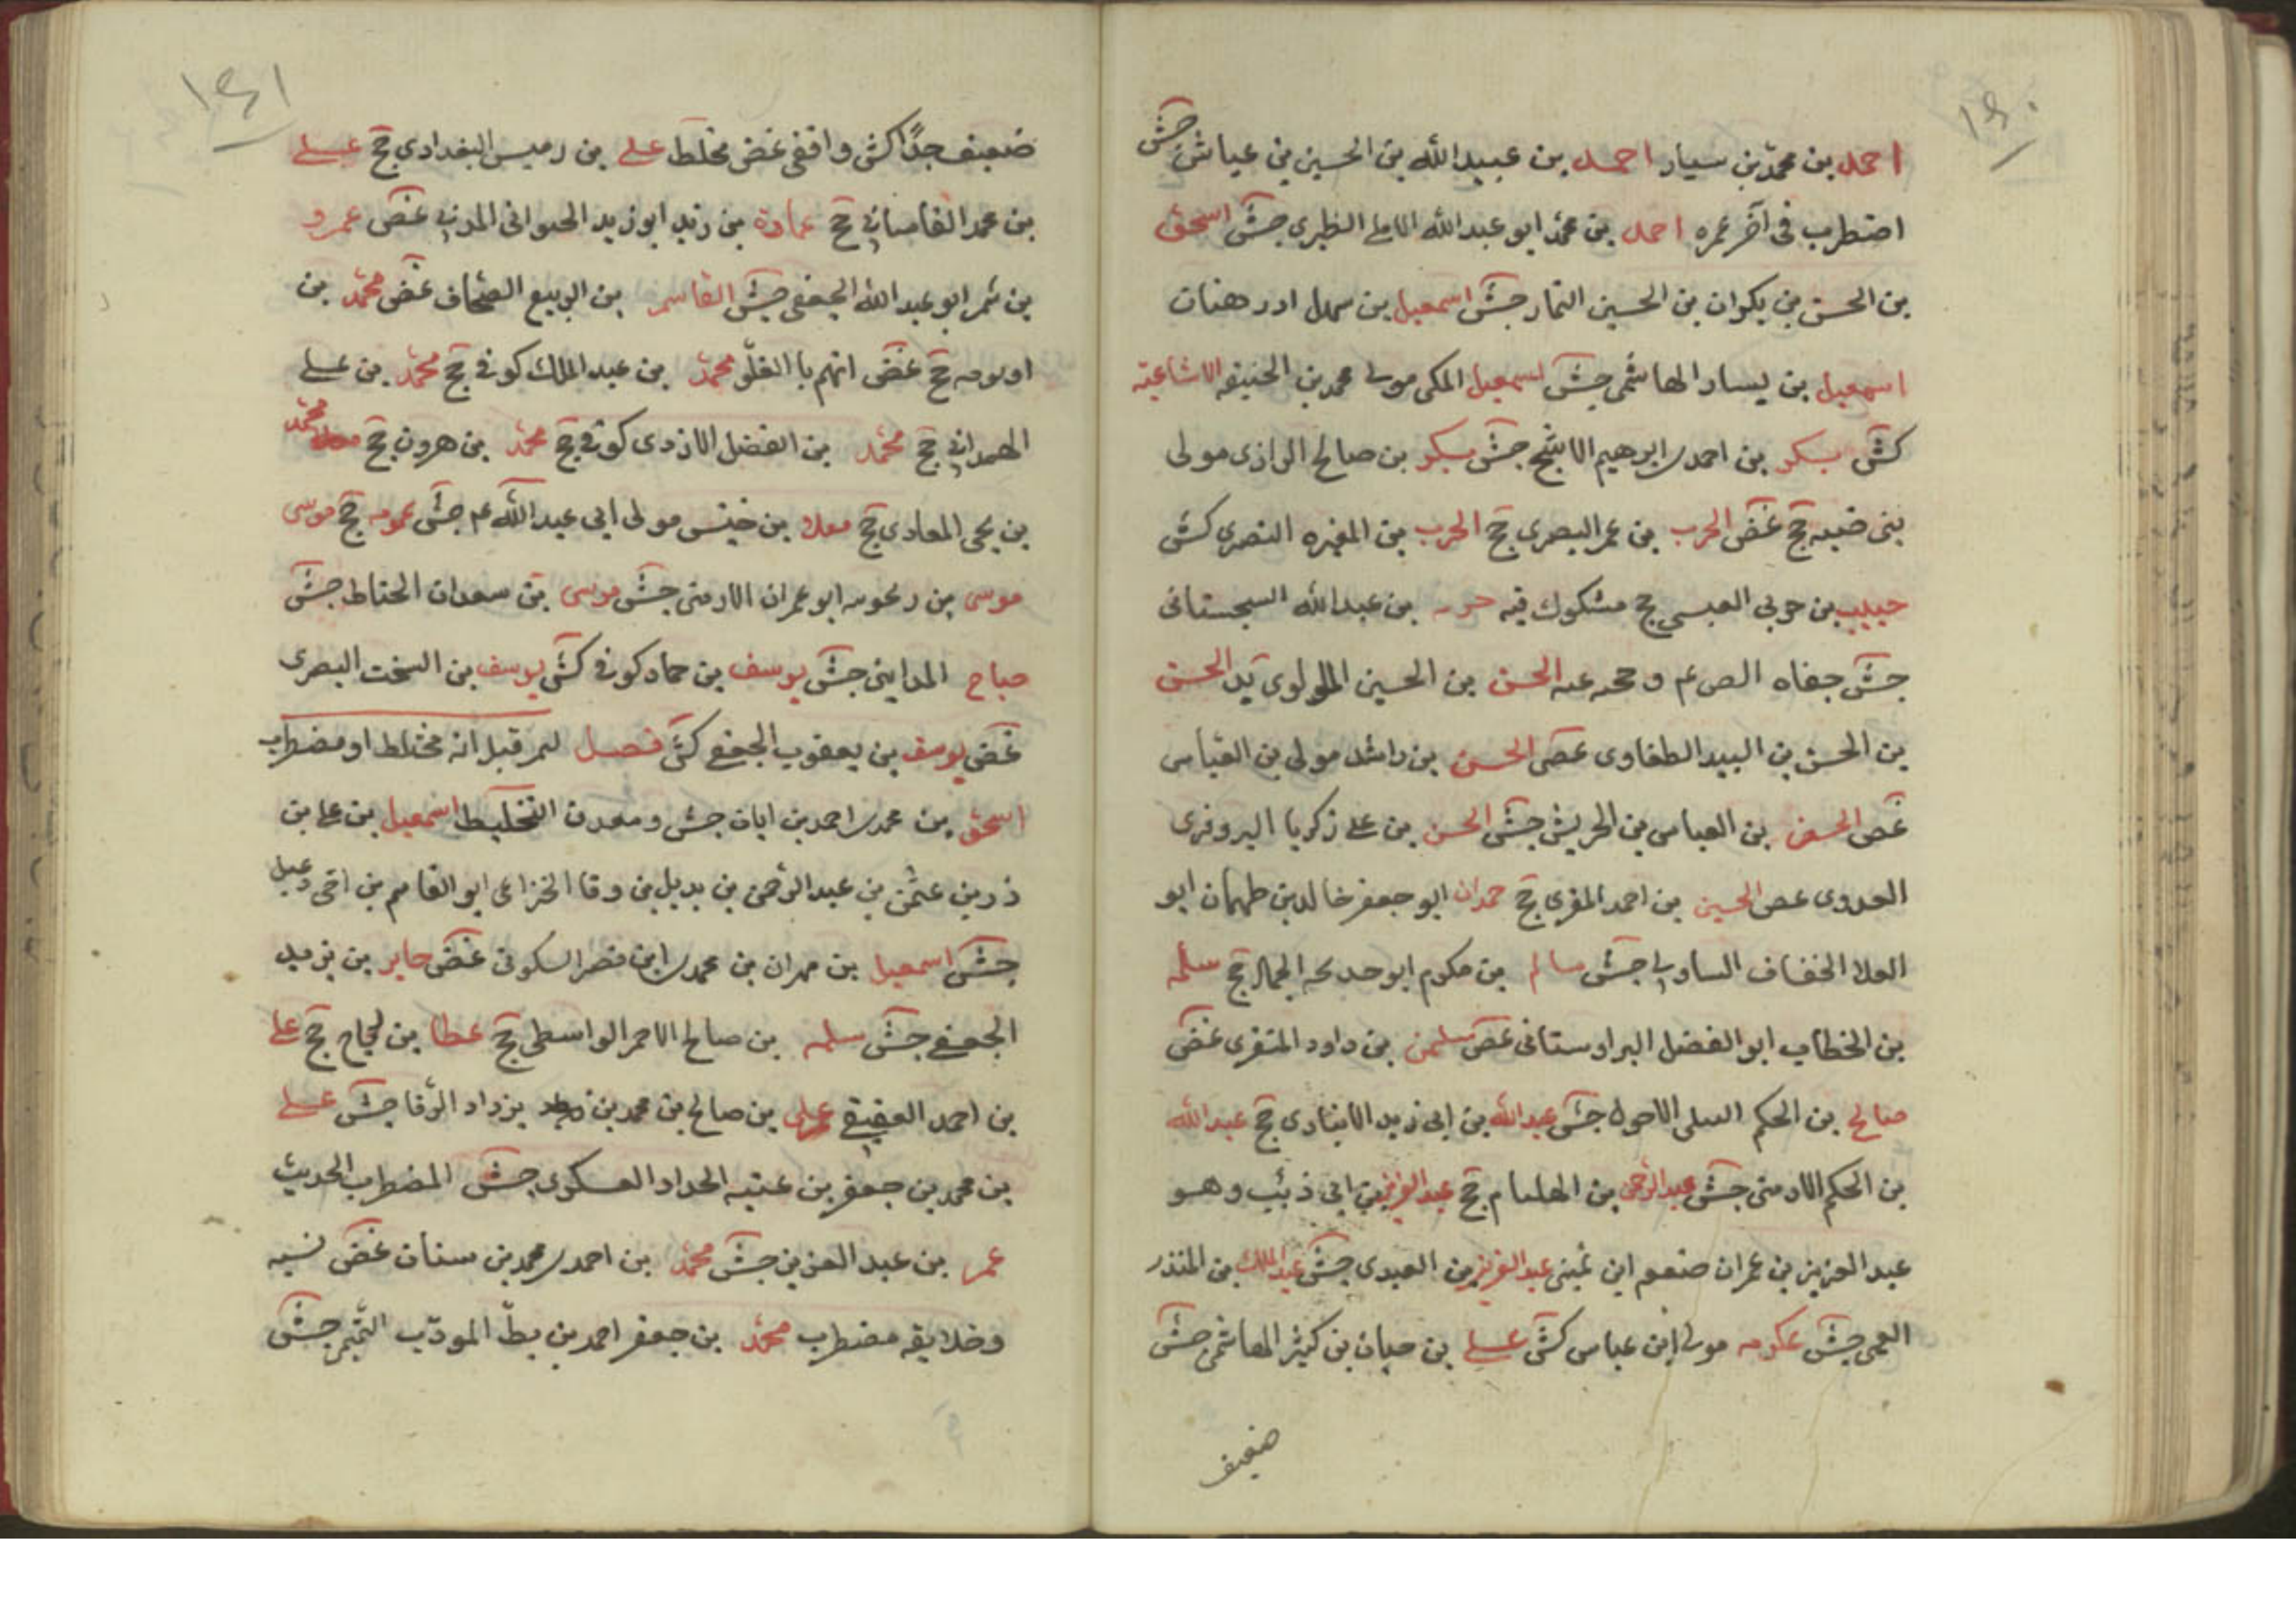 ١٤٠
احمد بن محمد بن سيار احمد بن عبيد الله بن الحسين بن عياش جش
اضطرب في آخر عمره احمد بن محمد ابو عبد الله الاملي الطبري جش اسحق
بن الحسن بن بكوان بن الحسين التمار جش اسمعيل بن سهل ادرهنات
اسمعيل بن يسار الهاشمي جش اسمعيل المكي مولى محمد بن الحنيفه الاشاعثه
كش بسكر بن احمد بن ابرهيم الاشج جش بسكر بن صالح الرازى مولى
بنى ضبه جخ غض الحرب بن عمر البصرى جخ الحرب بن المغيره النصرى كش
حبيب بن حربي العبسي جخ مشكوك فيه بن عبد الله السجستانى
جش جفاه الص عم و حجبه عنه الحسن بن الحسين اللولوى يد الحسن
بن الحسن بن البيد الطفاوى غض الحسن بن راشد مولى بن العباس
غض الحسن بن العباس بن الحريش جش الحسن بن على زكريا البروفرى
العدوى غض الحسين بن احمد المقرى جخ حمدان ابو جعفر خالد بن طهمان ابو
العلا الخفاف السلولى جش سالم بن مكرم ابو خديجه الجمال جخ سلمه
بن الخطاب ابو الفضل البراوستانى غض سليمن بن داود المنقرى غض
صالح بن الحكم النيلى الاحول جش عبد الله بن ابى زيد الانبارى جخ عبد الله
بن الحكم الارمنى جش عبد الرحمن بن الهلقام جخ عبد العزيز بن ابى ذئب وهو
عبد العزيز بن عمران ضعفه ابن نمير عبد العزيز بن العبدى جش عبد الملك بن المنذر
القمى جش عكرمه مولى ابن عباس كش على بن حسان بن كثير الهاشمى جش
ضعيف
١٤١
ضعيف جدًا كش واقفى غض مخلط على بن رميس البغدادى جخ على
بن محمد القاسانى جخ عمارة بن زيد ابو زيد الحيوانى المدنى غض عمرو
بن شمر ابو عبد الله الجعفى جش القاسم بن الربيع الصحاف غض محمد بن
اورمه جخ غض اتهم با الغلو محمد بن عبد الملك كوفى جخ محمد بن على
الهمدانى جخ محمد بن الفضل الازدى كوفى جخ محمد بن هرون جخ محمد
بن يحيى المعاذى جخ معلا بن خنيس مولى ابى عبد الله عم جش عمومه جخ موسى
موسى بن رنجويه ابو عمران الارمنى جش موسى بن سعدان الحناط جش
صباح المداينى جش يوسف بن حماد كوفى كش يوسف بن السخت البصرى
غض يوسف بن يعقوب الجعفى كش فصل لمر قيل انه مختلط او مضطرب
اسحق بن محمد بن احمد بن ابان جش ومعدن التخليط اسمعيل بن على بن
زرين عثمن بن عبد الرحمن بن بديل بن ورقا الخزاعى ابو القاسم بن اخى دعبل
جش اسمعيل بن مهران بن محمد بن ابى نصر السكونى غض جابر بن يزيد
الجعفى جش سلمه بن صالح الاحمر الواسطى جخ عطا بن لجاح جخ على
بن احمد العقيقى على بن صالح بن محمد بن يزداد الرفا جش على
بن محمد بن جعفر بن عنبسه الحداد العسكرى جش المضطرب الحديث
عمر بن عبد العزيز جش محمد بن احمد بن محمد بن سنان غض نسبه
وخلايقه مضطرب محمد بن جعفر احمد بن بطّ المودّب القمى جش